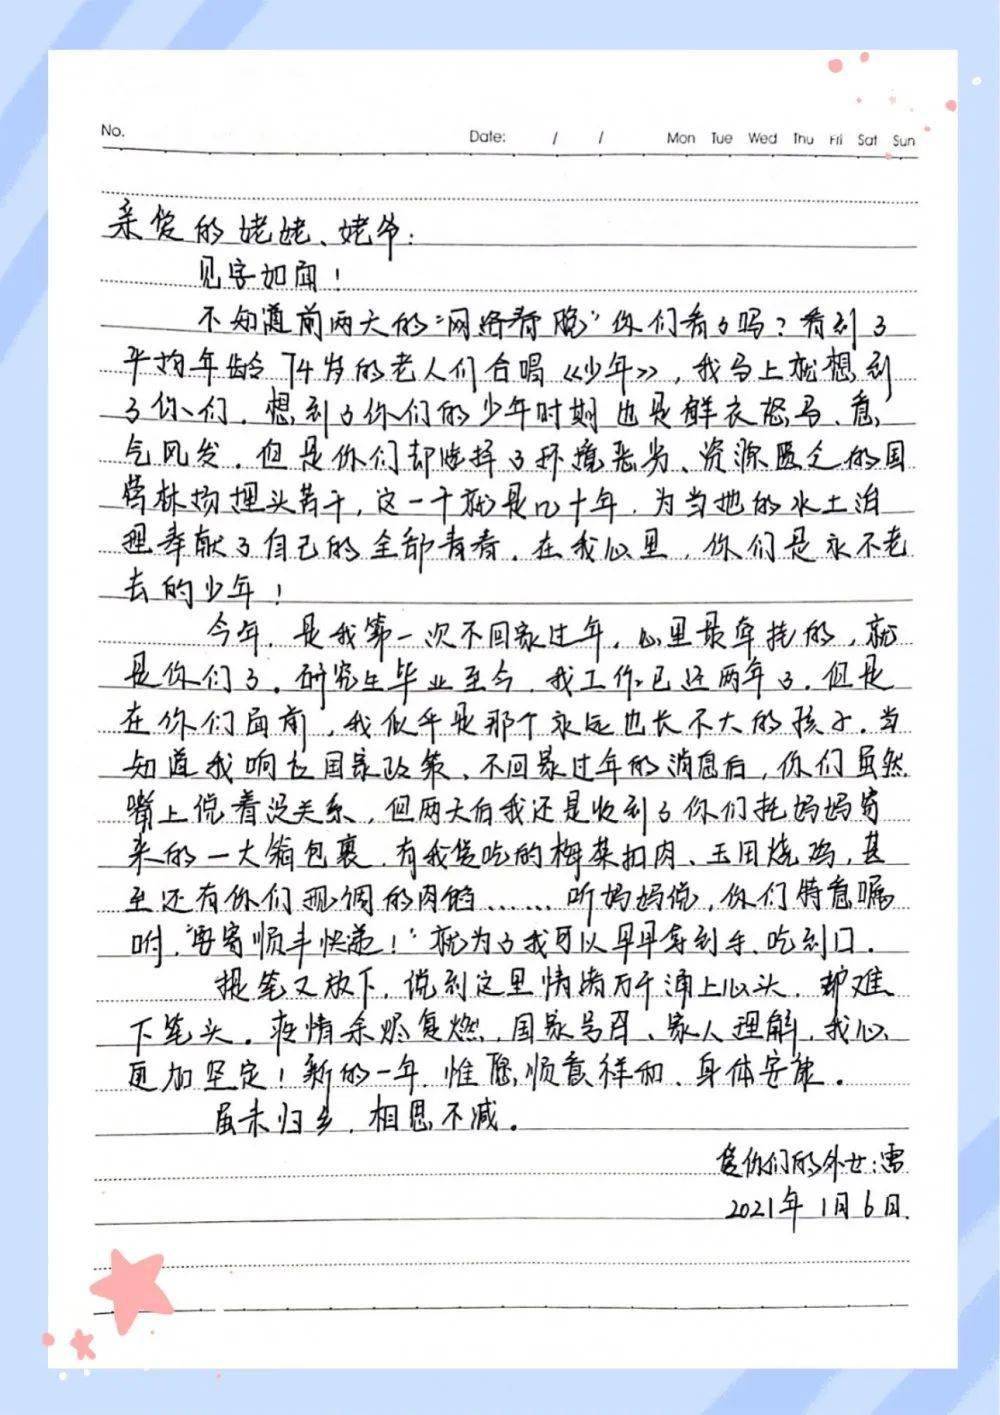 No.
Date: / / Mon Tue Wed Thu Fri Sat Sun
亲爱的姥姥、姥爷：
见字如面！
不知道前两天的“网络春晚”你们看了吗？看到了
平均年龄74岁的老人们合唱《少年》，我马上就想到
了你们。想到了你们的少年时期也是鲜衣怒马、意
气风发。但是你们却选择了环境恶劣、资源匮乏的国
营林场埋头苦干，这一干就是几十年，为当地的水土治
理奉献了自己的全部青春。在我心里，你们是永不老
去的少年！
今年，是我第一次不回家过年，心里最牵挂的，就
是你们了。研究生毕业至今，我工作已近两年了。但是
在你们面前，我似乎是那个永远也长不大的孩子。当
知道我响应国家政策、不回家过年的消息后，你们虽然
嘴上说着没关系，但两天后我还是收到了你们托妈妈寄
来的一大箱包裹，有我爱吃的梅菜扣肉、玉田烧鸡，甚
至还有你们现调的肉馅……听妈妈说，你们特意嘱
咐，“要寄顺丰快递！”就为了我可以早早拿到手、吃到口。
提笔又放下，说到这里情绪万千涌上心头，却难
下笔头。疫情余烬复燃，国家号召、家人理解，我心
更加坚定！新的一年，惟愿顺意祥和、身体安康。
虽未归乡，相思不减。
爱你们的外女：雷
2021年1月6日.